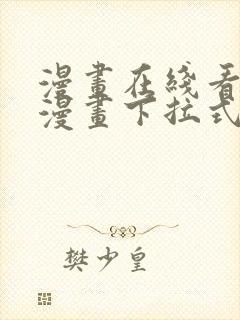 漫畫在綫看
漫畫下拉式
樊少皇